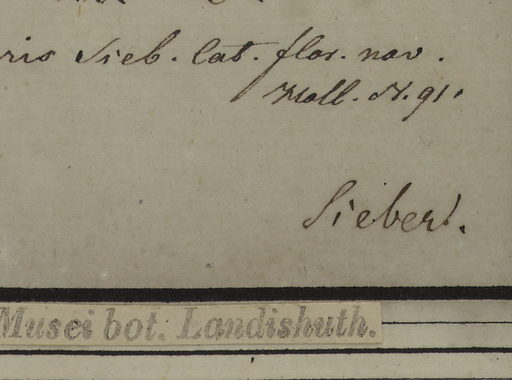 ris Sieb. Cat. flor. nov.
Holl. N. 91.
Sieber.
Musei bot. Landishuth.